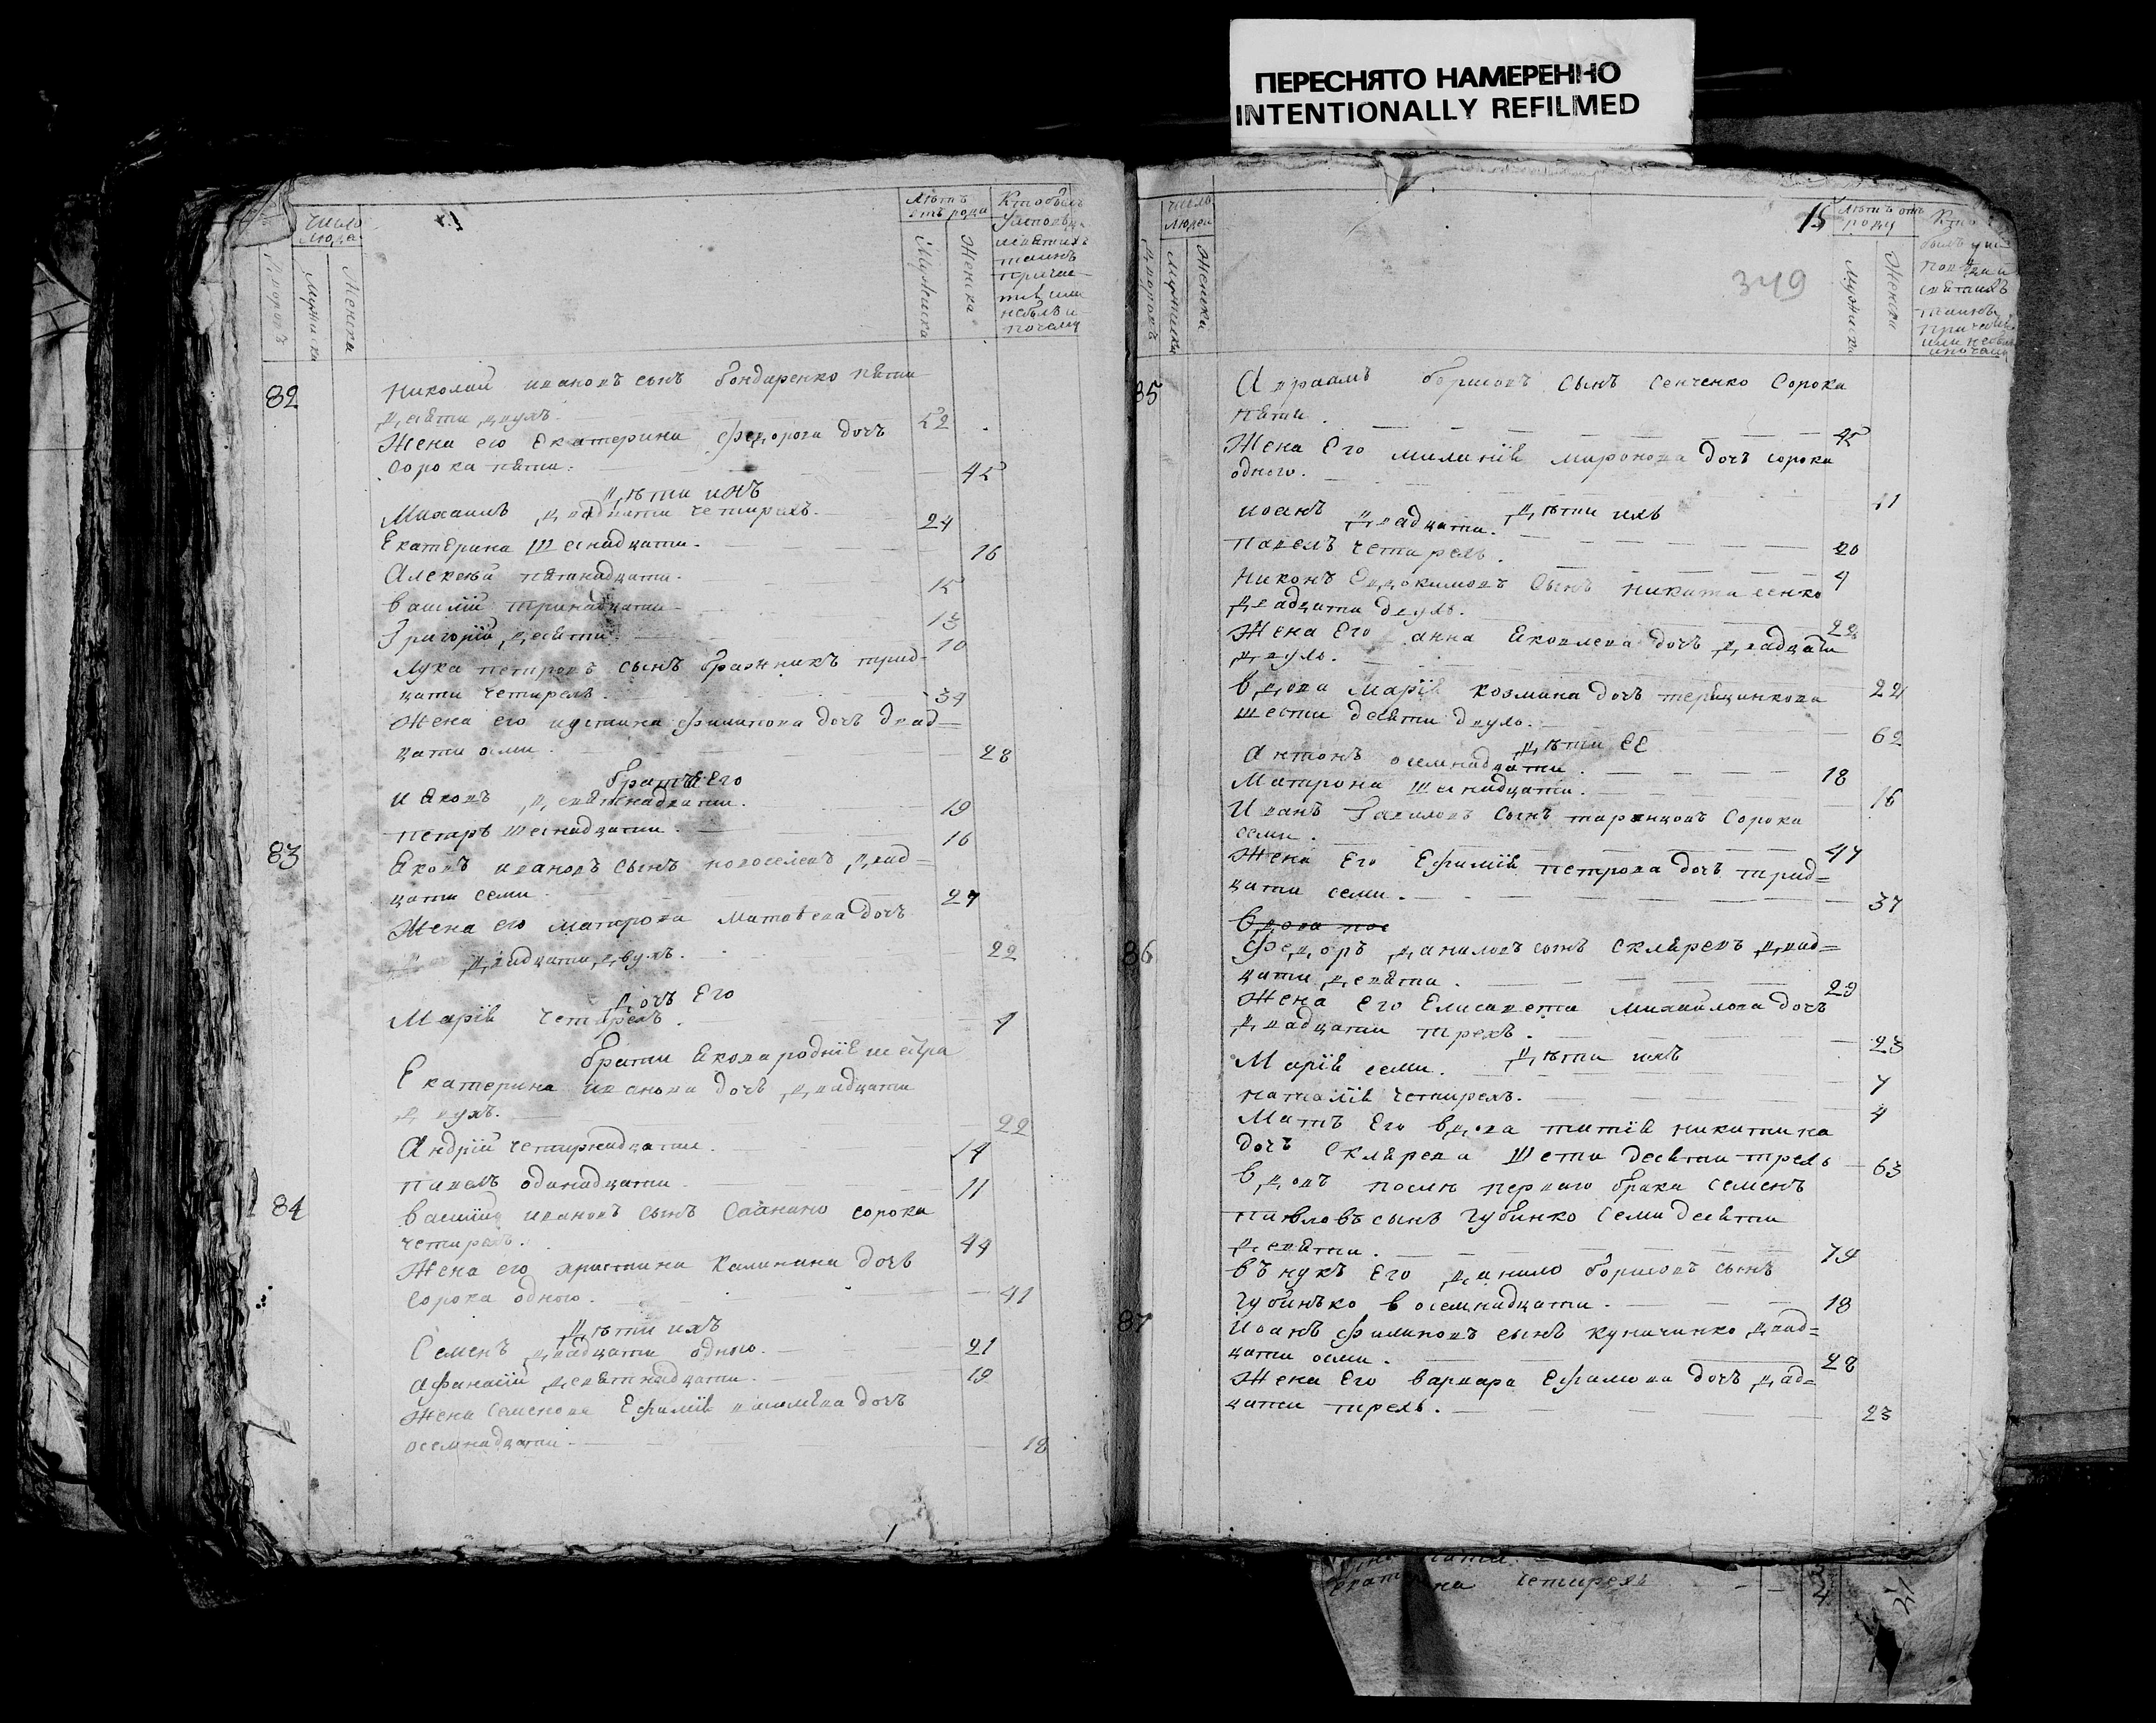 ПЕРЕСНЯТО НАМЕРЕННО
INTENTIONALLY REFILMED
число
людей
мужиска
женска
лѣтъ
отъ роду
Мужиска
Женска
Кто былъ
у исповѣди
святыхъ
таинъ
причас
тія или
небылъ и
почему
82
Николай ивановъ сынъ бондаренко пяти
десяти двухъ. 52
Жена его Екатерина федорова дочъ
сорока пяти. 45
Дѣти ихъ
Михаилъ двадцати четирехъ. 24
Екатерина Шеснадцати. 16
Алексѣй пятнадцати. 15
василій тринадцати 13
Григорій десяти. 10
Лука петровъ сынъ бражникъ трид-
цати четирехъ. 34
Жена его иустина филипова дочъ двад=
цати осми. 28
братія Его
Ияковъ девятнадцати. 19
петаръ шеснадцати. 16
83
Яковъ ивановъ сынъ новоселевъ двад=
цати семи 27
Жена его матрона Матвѣева дочъ
двадцати двухъ. 22
дочъ Его
Марія четирехъ. 4
брати Якова роднiе и сестра
Екатерина иванова дочъ двадцати
двухъ. 22
Андрій четирнадцати. 14
павелъ одинадцати. 11
84
василий ивановъ сынъ сорока
четирехъ. 44
Жена его христина Калинина дочъ
сорока одного. 41
Дѣти ихъ
Семенъ двадцати одного. 21
афанасій девятнадцати. 19
Жена Семенова Ефимія дочъ
осемнадцати. 18
число
людей
дворовъ
Мужиска
Женска
15
349
лѣтъ отъ
роду
Мужиска
Женска
Кто
былъ у ис
повѣди и
святихъ
таинъ
или небылъ
и почему
85
Авраамъ борисовъ сынъ сенченко сорока
пяти. 45
Жена Его миланія миронова дочъ сорока
одного. 41
Дѣти ихъ
иоанъ двадцати. 20
павелъ четирехъ. 4
Никонъ Евдокимовъ сынъ никитисенко
двадцати двухъ. 22
Жена Его анна Яковлева дочъ двадцати
двухъ. 22
вдова Марія козмина дочъ
шести десяти двухъ. 62
Дѣти ЕЕ
Антонъ осемнадцати. 18
Матрона шеснадцати. 16
Иванъ сынъ Сорока
семи. 47
Жена Его Ефимія петрова дочъ трид=
цати семи. 37
Вдова пос
86
Федоръ даниловъ сынъ скляревъ двад=
цати девяти. 29
Жена Его Елисавета михайлова дочъ
двадцати трехъ. 23
Дѣти ихъ
Марія семи. 7
наталія четирехъ. 4
Мать Его вдова татія никитина
дочъ Склярева Шести десяти трехъ 63
вдовъ послѣ перваго брака семенъ
павловъ сынъ губинко семидесяти
девяти. 79
внукъ Его данило борисовъ сынъ
губинъко восемнадцати. 18
87
Иоанъ филиповъ сынъ куничинко двад=
цати осми. 28
Жена Его варвара Ефимова дочъ двад=
цати трехъ. 23
четирехъ